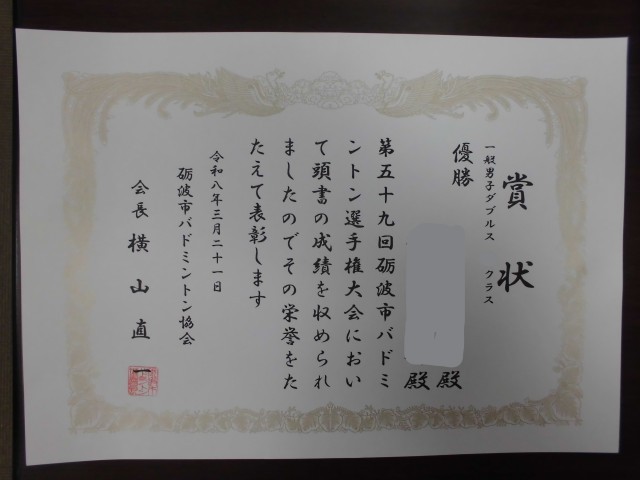 賞状
一般男子ダブルス クラス
優勝
殿
殿
第五十九回砺波市バドミ
ントン選手権大会におい
て頭書の成績を収められ
ましたのでその栄誉をた
たえて表彰します
令和八年三月二十一日
砺波市バドミントン協会
会長 横山直一